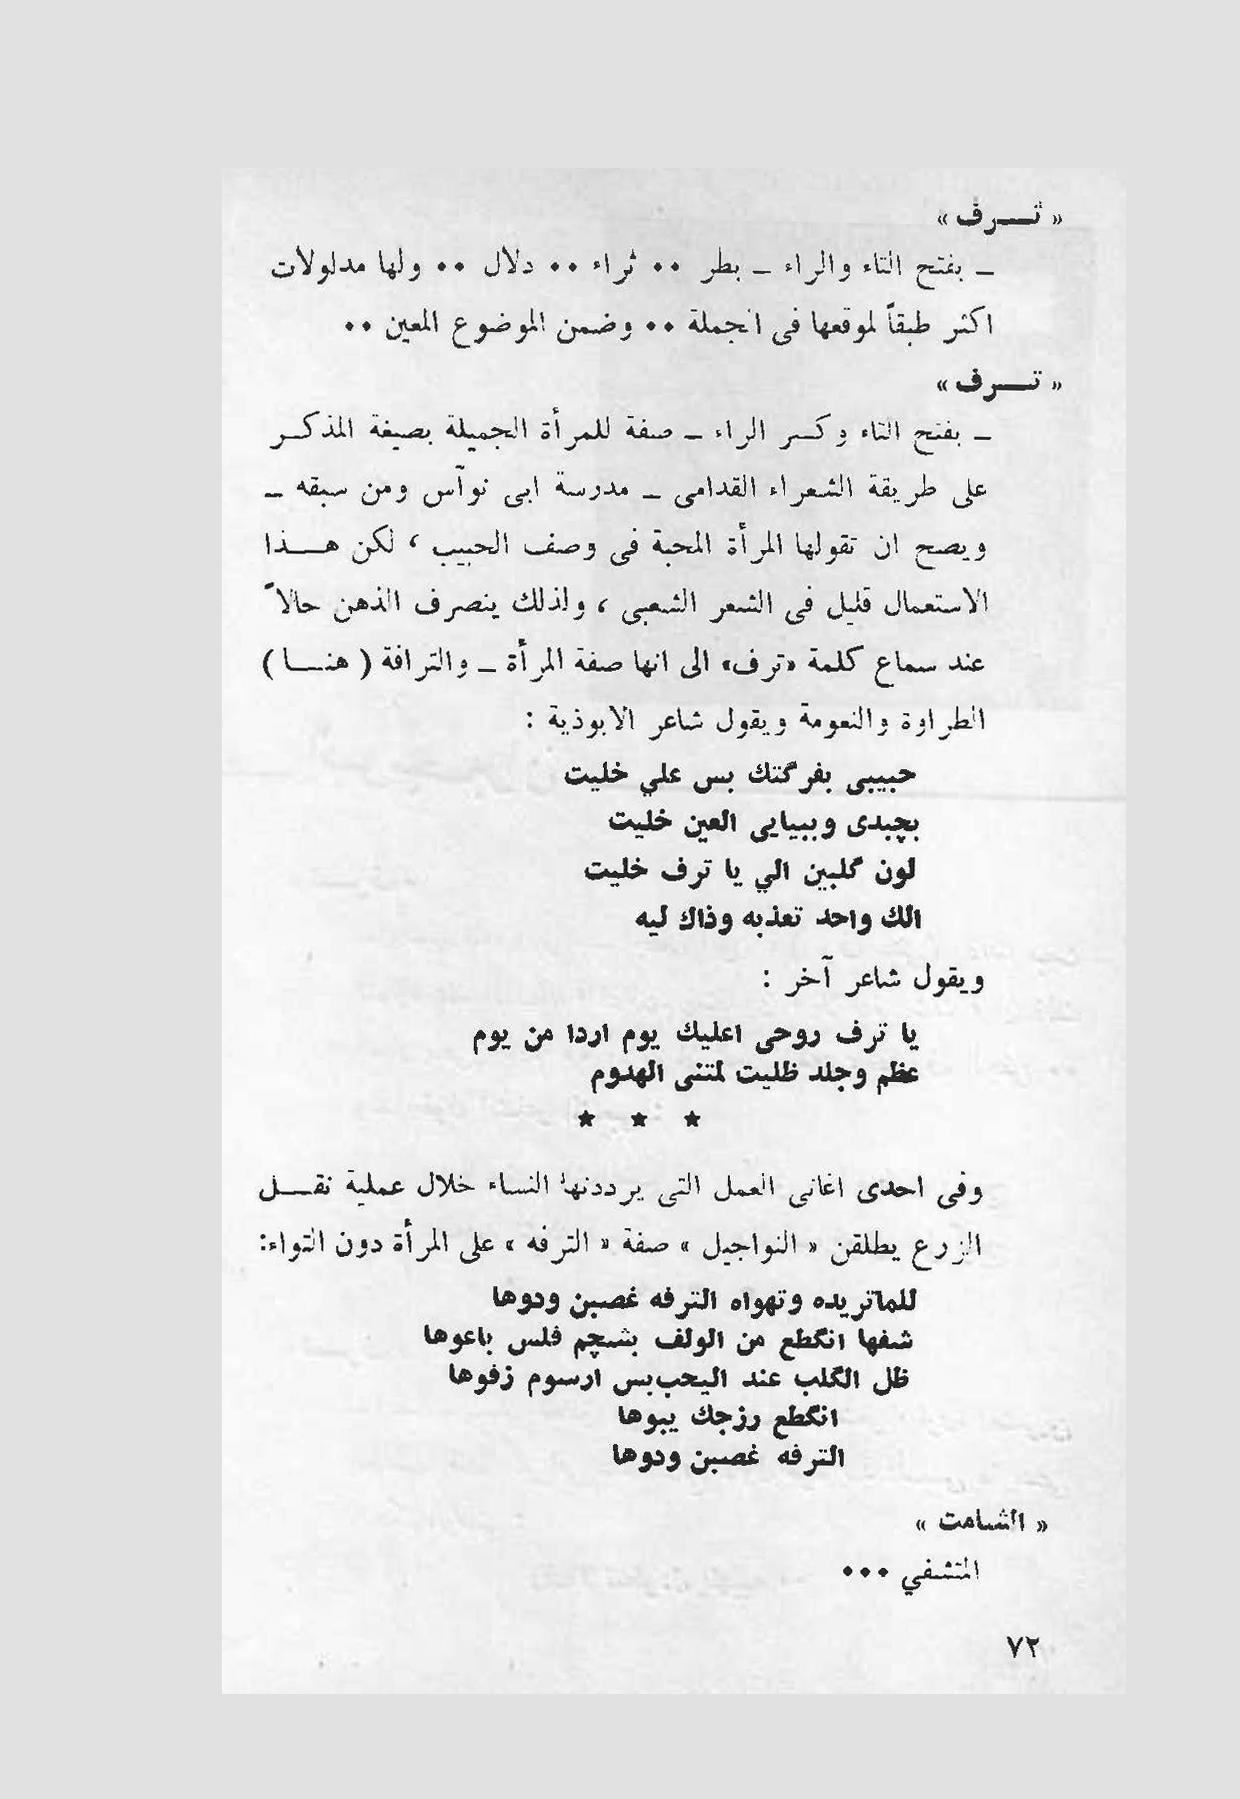 « تـــرف »
ــ بفتح التاء والراء ــ بطر ٠٠ ثراء ٠٠ دلال ٠٠ ولها مدلولات
اكثر طبقاً لموقعها فى الجملة ٠٠ وضمن الموضوع المعين ٠٠
« تـــرف »
ــ بفتح التاء وكسر الراء ــ صفة للمرأة الجميلة بصيغة المذكـر
على طريقة الشعراء القدامى ــ مدرسة ابى نوآس ومن سبقه ــ
ويصح ان تقولها المرأة المحبة فى وصف الحبيب ، لكن هـــذا
الاستعمال قليل فى الشعر الشعبى ، ولذلك ينصرف الذهن حالاً
عند سماع كلمة «ترف» الى انها صفة المرأة ــ والترافة ( هنـــا )
الطراوة والنعومة ويقول شاعر الابوذية :
حبيبى بفرگتك بس علي خليت
بچبدى وببيايى العين خليت
لون گلبين الي يا ترف خليت
الك واحد تعذبه وذاك ليه
ويقول شاعر آخر :
يا ترف روحى اعليك يوم اردا من يوم
عظم وجلد ظليت لمتنى الهدوم
★ ★ ★
وفى احدى اغانى العمل التى يرددنها النساء خلال عملية نقـــل
الزرع يطلقن « النواجيل » صفة « الترفه » على المرأة دون التواء:
للماتريده وتهواه الترفه غصبن ودوها
شفها انگطع من الولف بشچم فلس باعوها
ظل الگلب عند اليحب‌بس ارسوم زفوها
انگطع رزجك يبوها
الترفه غصبن ودوها
« الشامت »
المتشفي ٠٠٠
٧٢